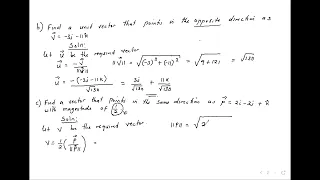 b) Find a unit vector that points in the opposite direction as
v⃗ = -3j - 11k
Soln:
Let u⃗ be the required vector
u⃗ = - v⃗ / ||v⃗||
||v⃗|| = √((-3)² + (-11)²) = √(9 + 121) = √130
u⃗ = -(-3j - 11k) / √130 = 3j / √130 + 11k / √130
c) Find a vector that points in the same direction as p⃗ = 2i - 2j + k
with magnitude of 1/2.
Soln:
Let v be the required vector.
||p|| = √2²
v = 1/2 ( p⃗ / ||p|| ) =